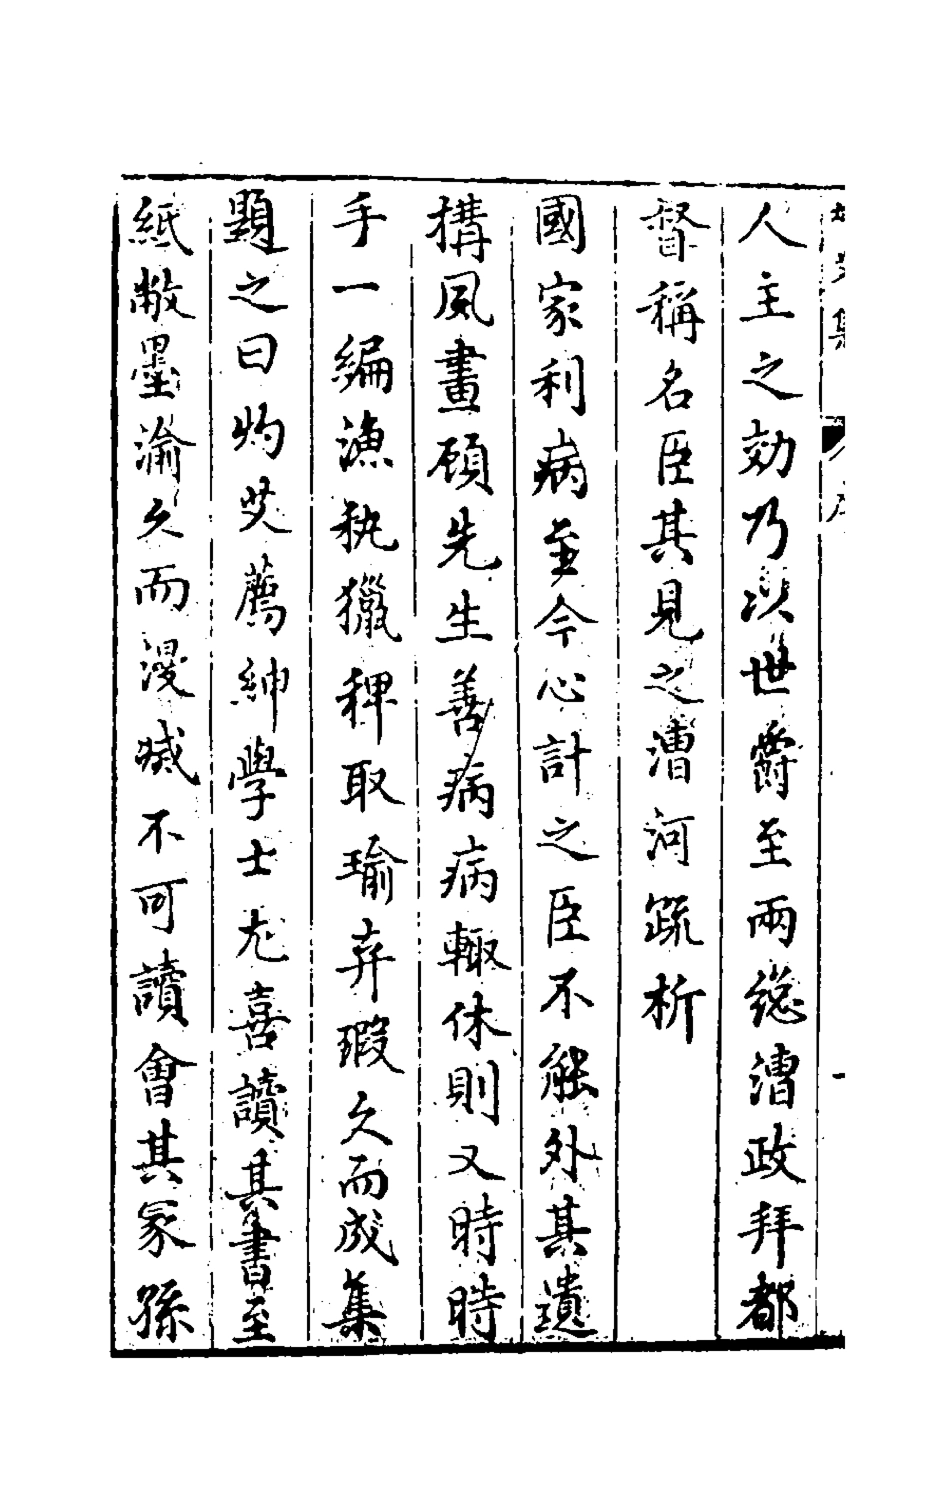 集
人主之効乃以世爵至兩緫漕政拜都
督稱名臣其見之漕河䟽析
國家利病至今心計之臣不能外其遺
構風畫顧先生善病病輙休則又時時
手一編漁秇獵稗取瑜弃瑕久而成集
題之曰灼艾薦紳學士尤喜讀其書至
紙敝墨渝久而漫滅不可讀會其冢孫